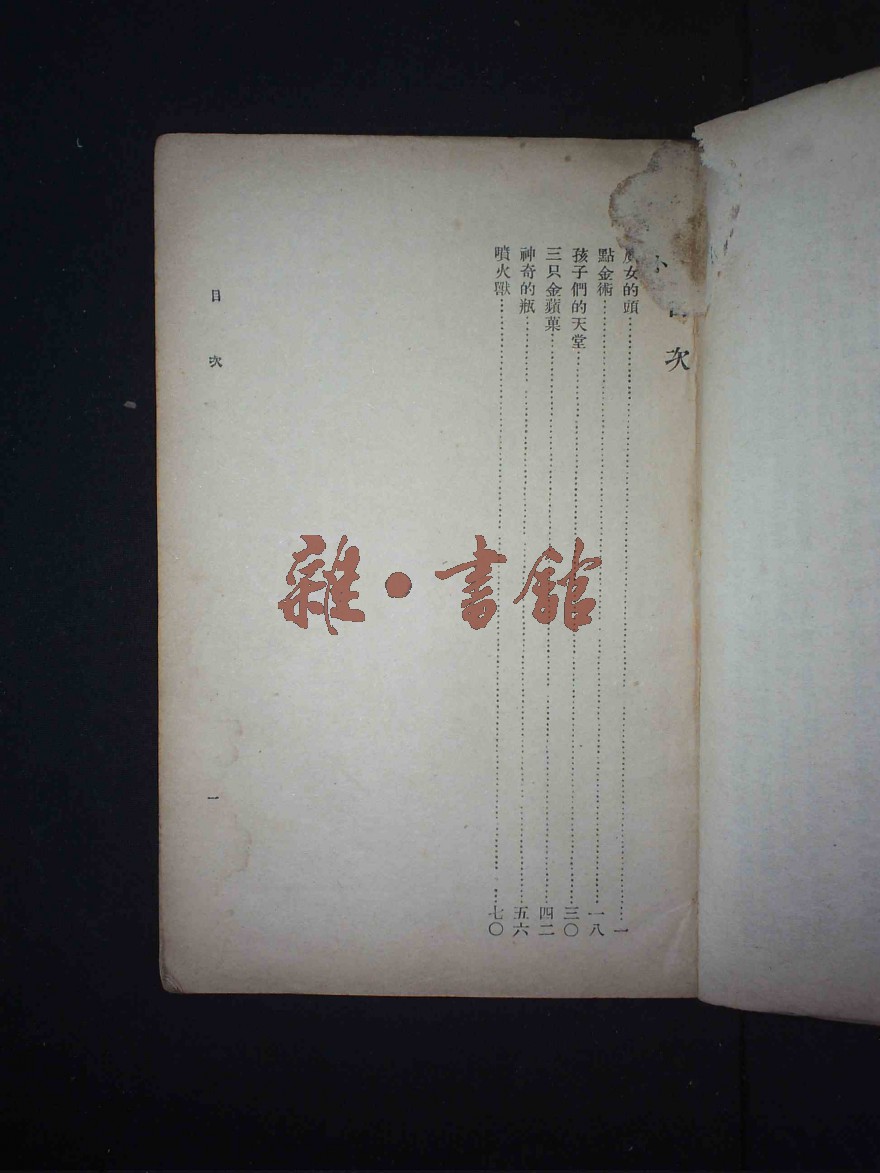 次
女的頭……一
點金術……一八
孩子們的天堂……三〇
三只金蘋菓……四二
神奇的瓶……五六
噴火獸……七〇
目次
一
雜·書館